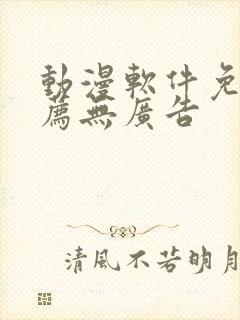 動漫軟件免
薦無廣告
清風不若明月